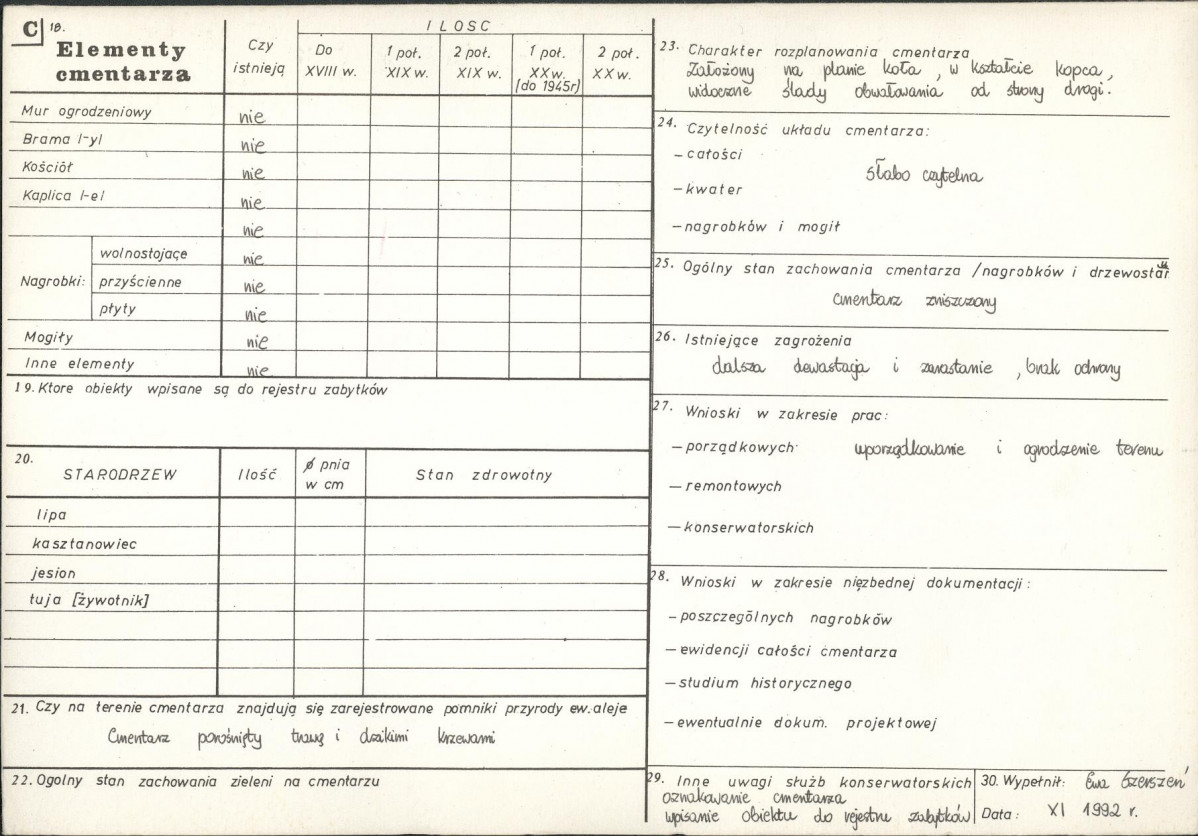 C 18.
Elementy
cmentarza
Czy
istnieją
ILOSC
Do
XVIII w.
1 poł.
XIX w.
2 poł.
XIX w.
1 poł.
XX w.
(do 1945r)
2 poł.
XX w.
Mur ogrodzeniowy nie
Brama /-y/ nie
Kościół nie
Kaplica /-e/ nie
nie
Nagrobki: wolnostojące nie
przyścienne nie
płyty nie
Mogiły nie
Inne elementy nie
19. Ktore obiekty wpisane są do rejestru zabytków
20.
STARODRZEW
Ilość
ø pnia
w cm
Stan zdrowotny
lipa
kasztanowiec
jesion
tuja [żywotnik]
21. Czy na terenie cmentarza znajdują się zarejestrowane pomniki przyrody ew. aleje
Cmentarz porośnięty trawą i dzikimi krzewami
22. Ogolny stan zachowania zieleni na cmentarzu
23. Charakter rozplanowania cmentarza
Założony na planie koła, w kształcie kopca,
widoczne ślady obwałowania od strony drogi.
24. Czytelność układu cmentarza:
- całości
słabo czytelna
- kwater
- nagrobków i mogił
25. Ogólny stan zachowania cmentarza /nagrobków i drzewostan
cmentarz zniszczony
26. Istniejące zagrożenia
dalsza dewastacja i zarastanie, brak ochrony
27. Wnioski w zakresie prac:
- porządkowych uporządkowanie i ogrodzenie terenu
- remontowych
- konserwatorskich
28. Wnioski w zakresie nięzbednej dokumentacji:
- poszczególnych nagrobków
- ewidencji całości cmentarza
- studium historycznego
- ewentualnie dokum. projektowej
29. Inne uwagi służb konserwatorskich
oznakowanie cmentarza
wpisanie obiektu do rejestru zabytków
30. Wypełnił: Ewa Szerszeń
Data: XI 1992 r.